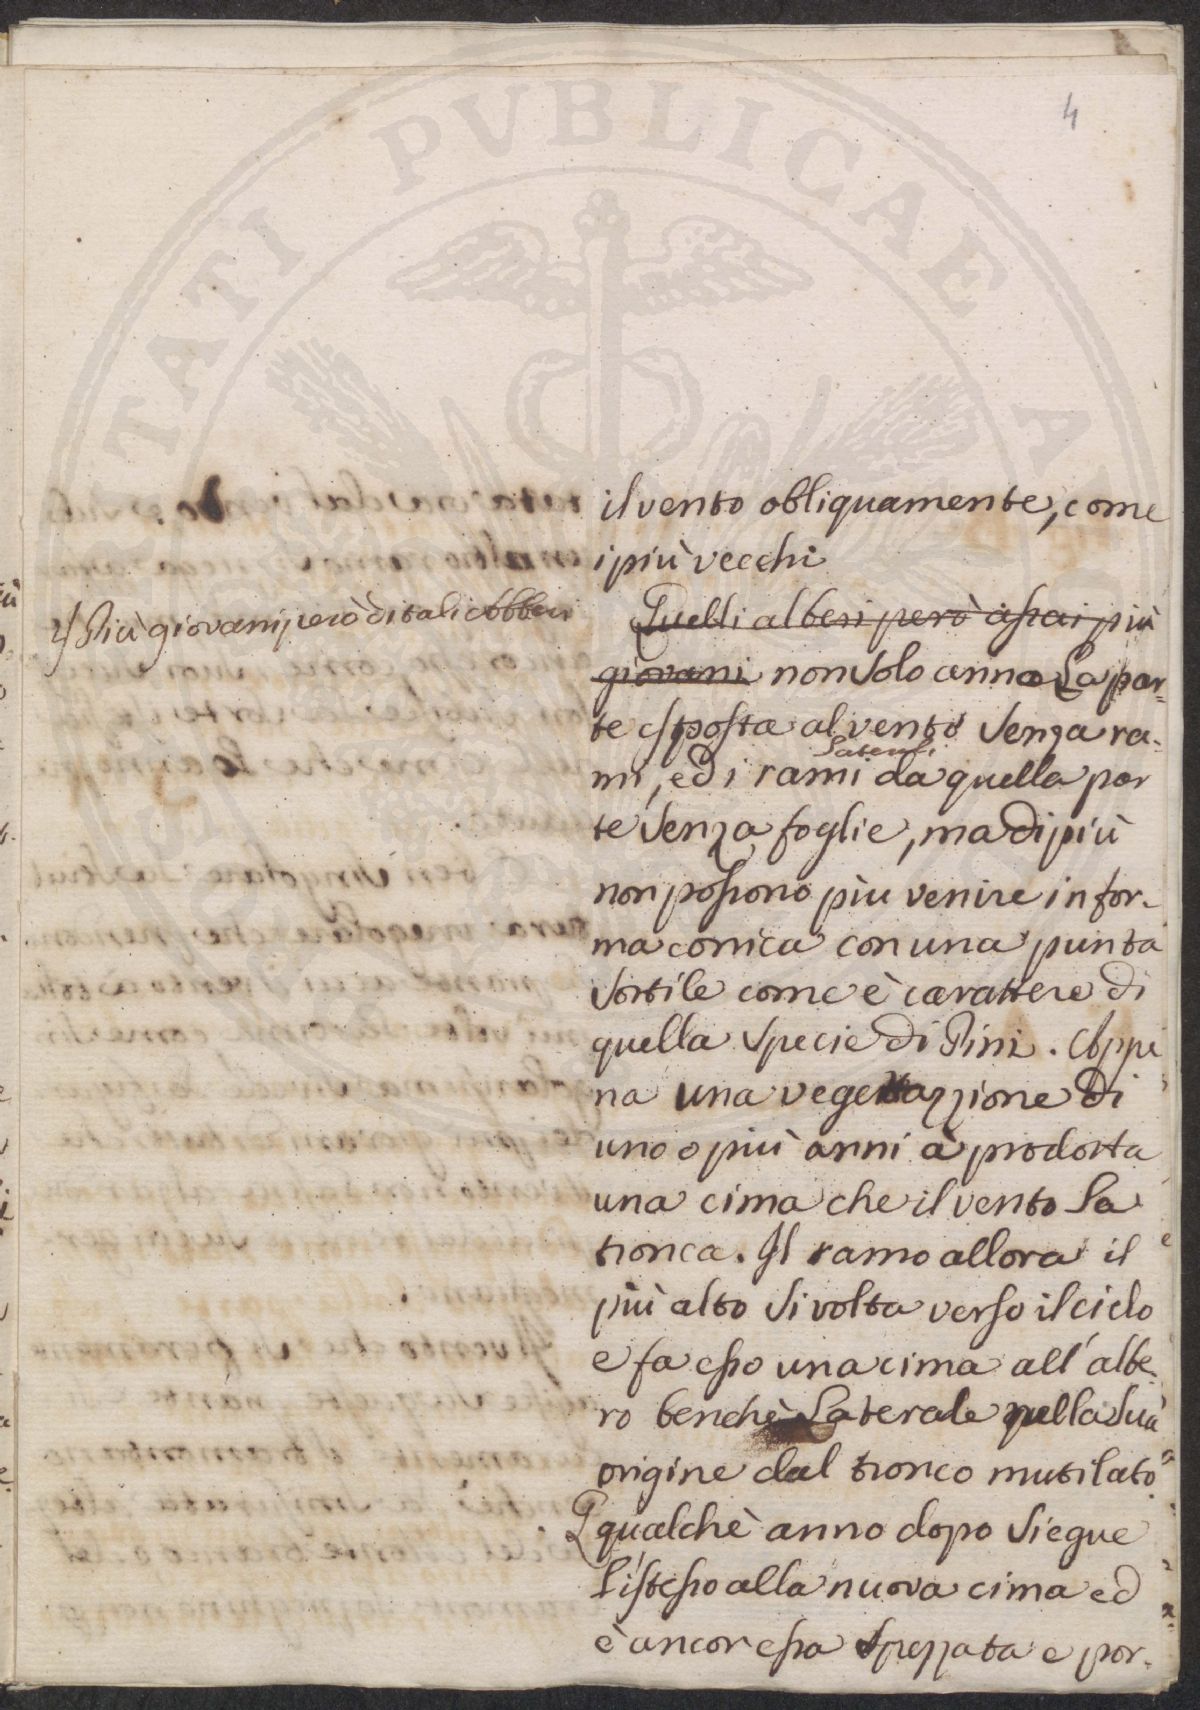 4
il vento obliquamente, come
i più vecchi
χ Più giovani però di tali Abberi
Quelli alberi però assai più
giovani non solo anno la par=
te esposta al vento senza ra-
laterali
mi, ed i rami da quella par
te senza foglie, ma di più
non possono più venire in for-
ma conica con una punta
sottile come è carattere di
quella specie di Pini. Appe
na una vegettazzione di
uno o più anni à prodotta
una cima che il vento la
tronca. Il ramo allora il
più alto si volta verso il cielo
e fa esso una cima all'albe-
ro benchè laterale nella sua
origine dal tronco mutilato.
qualchè anno dopo siegue
l'istesso alla nuova cima ed
è ancor essa spezzata e por-